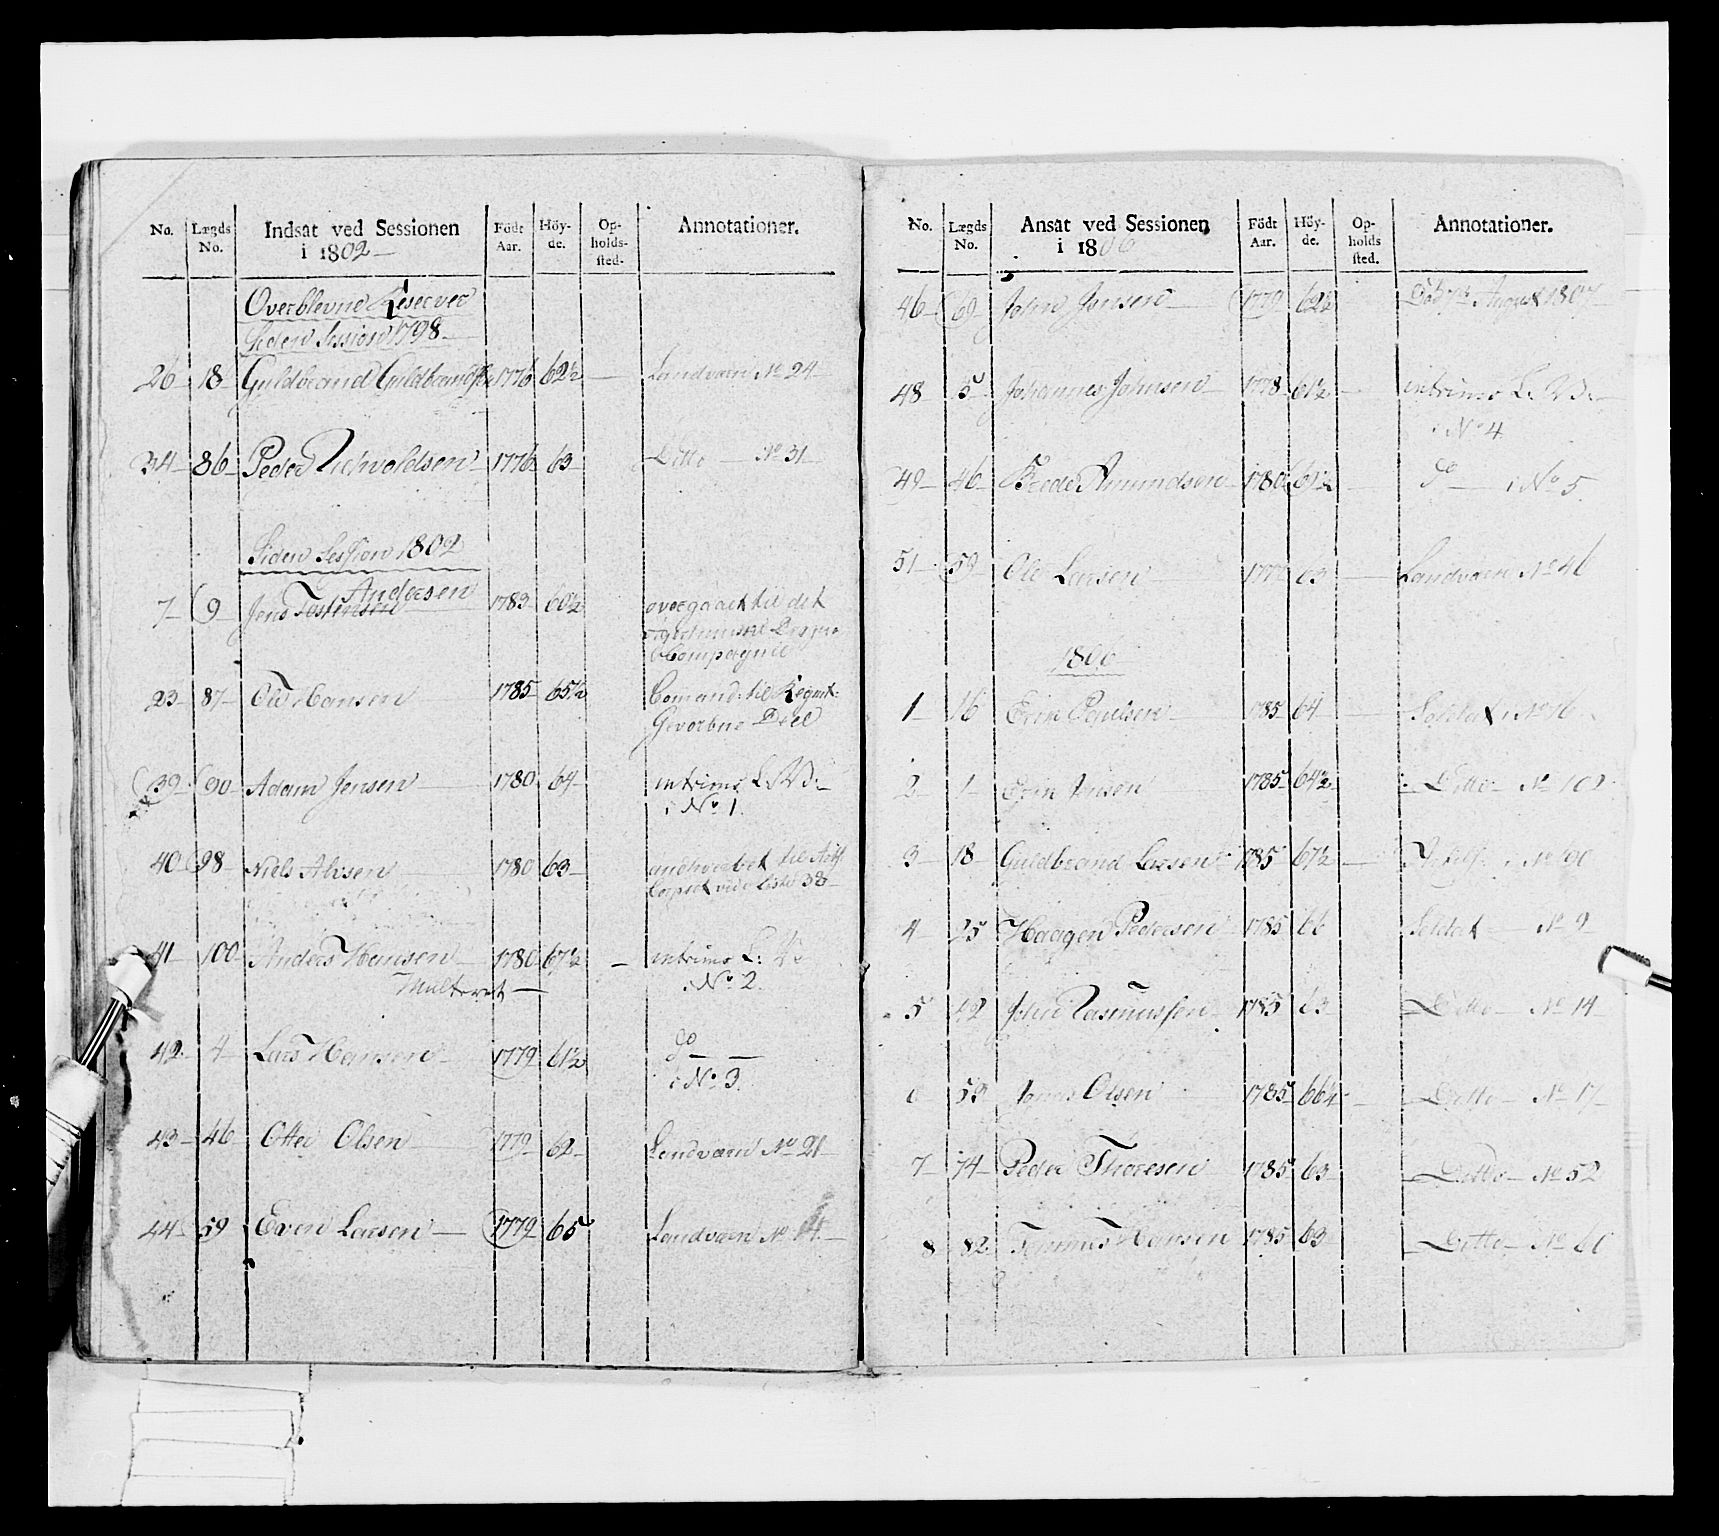 No. Lægds No. Indsat ved Sessionen i 1802 Födt Aar. Höy-de. Op-holds-sted. Annotationer.
Overblevne Reserver
Siden Session 1798
26 18 Guldbrand Guldbrands 1776 62½ Landværn No 24
34 86 Peder 1776 63 Ditto No 31
Siden Session 1802
Andersen
7 9 Jens Torstensen 1783 60½ overgaaet til det
Compagnie
23 87 Ole Hansen 1785 65½ Comand: til Regmt:
Gevorbne Deel
39 90 Adam Jensen 1780 64 intrims L: V:
i No 1.
40 98 Niels Alvsen 1780 63 til Artl:
Corpset vide Liste 38
41 100 Anders Hansen 1780 67½ intrims L: V:
i No 2.
Multeret
42 4 Lars Hansen 1779 61½ do
i No 3.
43 46 Otter Olsen 1779 62 Landværn No 21
44 59 Even Larsen 1779 65 Landværn No 14
No. Lægds No. Ansat ved Sessionen i 1806 Födt Aar. Höy-de. Op-holds sted. Annotationer.
46 69 John Jensen 1779 62½ Död August 1807
48 5 Johannes Johnsen 1778 61½ intrims L: V:
i No 4
49 46 Brede Amundsen 1780 61½ do i No 5.
51 59 Ole Larsen 63 Landværn No 46
1806
1 16 Erik Poulsen 1785 64 Soldat i No 16
2 1 Jensen 1785 64½ Ditto No 102
3 18 Guldbrand Larsen 1785 67½ No 100
4 25 Haagen Pedersen 1785 66 Soldat No 9
5 42 John Rasmussen 1785 63 Ditto No 14
6 53 Olsen 1785 66½ Ditto No 17
7 74 Peder Thoresen 1785 63 Ditto No 52
8 82 Hansen 1785 63 Ditto No 60